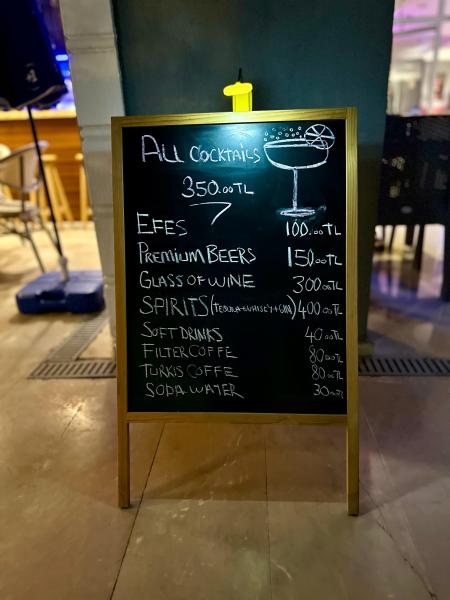 ALL COCKTAILS
350.00TL
EFES 100.00TL
PREMIUM BEERS 150.00TL
GLASS OF WINE 300.00TL
SPIRITS (TEQUILA+WHISEY+GIN) 400.00TL
SOFT DRINKS 40.00TL
FILTER COFFE 80.00TL
TURKIS COFFE 80.00TL
SODA WATER 30.00TL